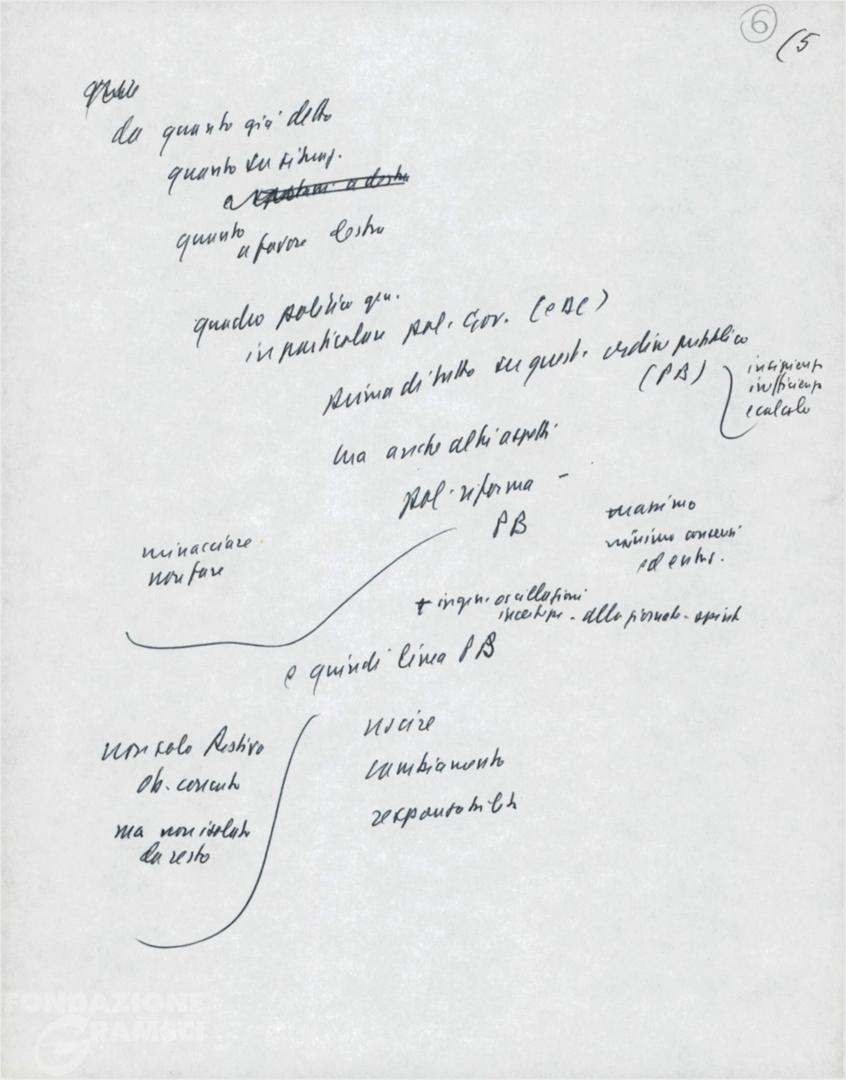 6
(5
da quanto già detto
quanto su situaz.
e spostam. a destra
quanto
a favore destra
quadro politico gen.
in particolare pol. Gov. (e DC)
prima di tutto su quest. ordine pubblico
(PB)
insipiente
insufficiente
e calcolo
ma anche altri aspetti
pol. riforma -
PB
massimo
minimo consensi
ed entus.
minacciare
non fare
+ ingen. oscillazioni
incertezze - alla giornata -
e quindi linea PB
non solo
ob. concreto
ma non isolato
da resto
uscire
cambiamento
responsabilità
FONDAZIONE
GRAMSCI